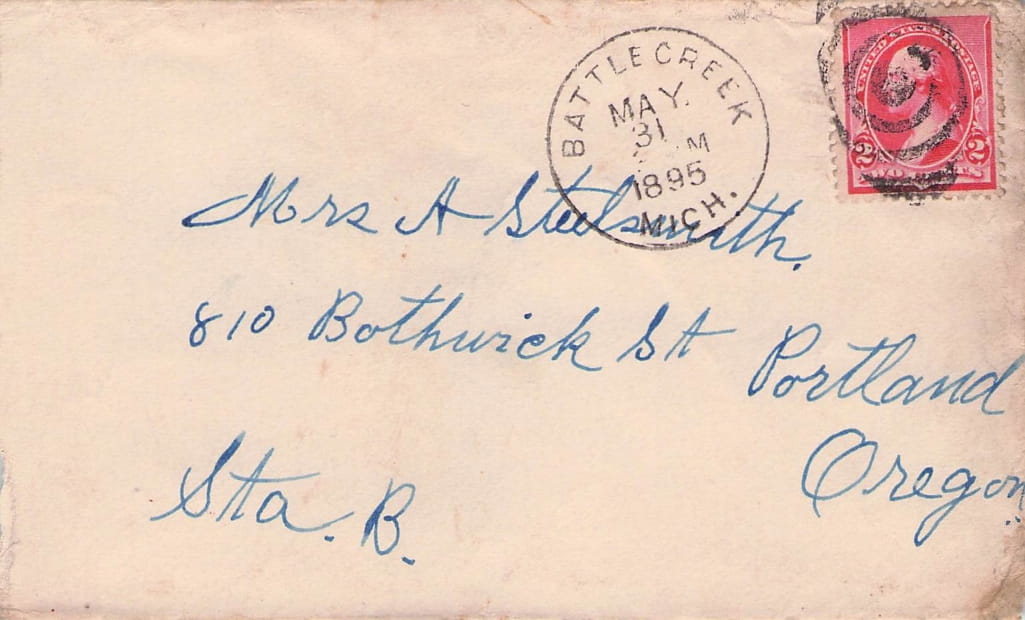 BATTLE CREEK
MAY.
31
M
1895
MICH.
UNITED STATES POSTAGE
2 2
Mrs A Steelsmith.
810 Bothwick St Portland
Oregon.
Sta. B.